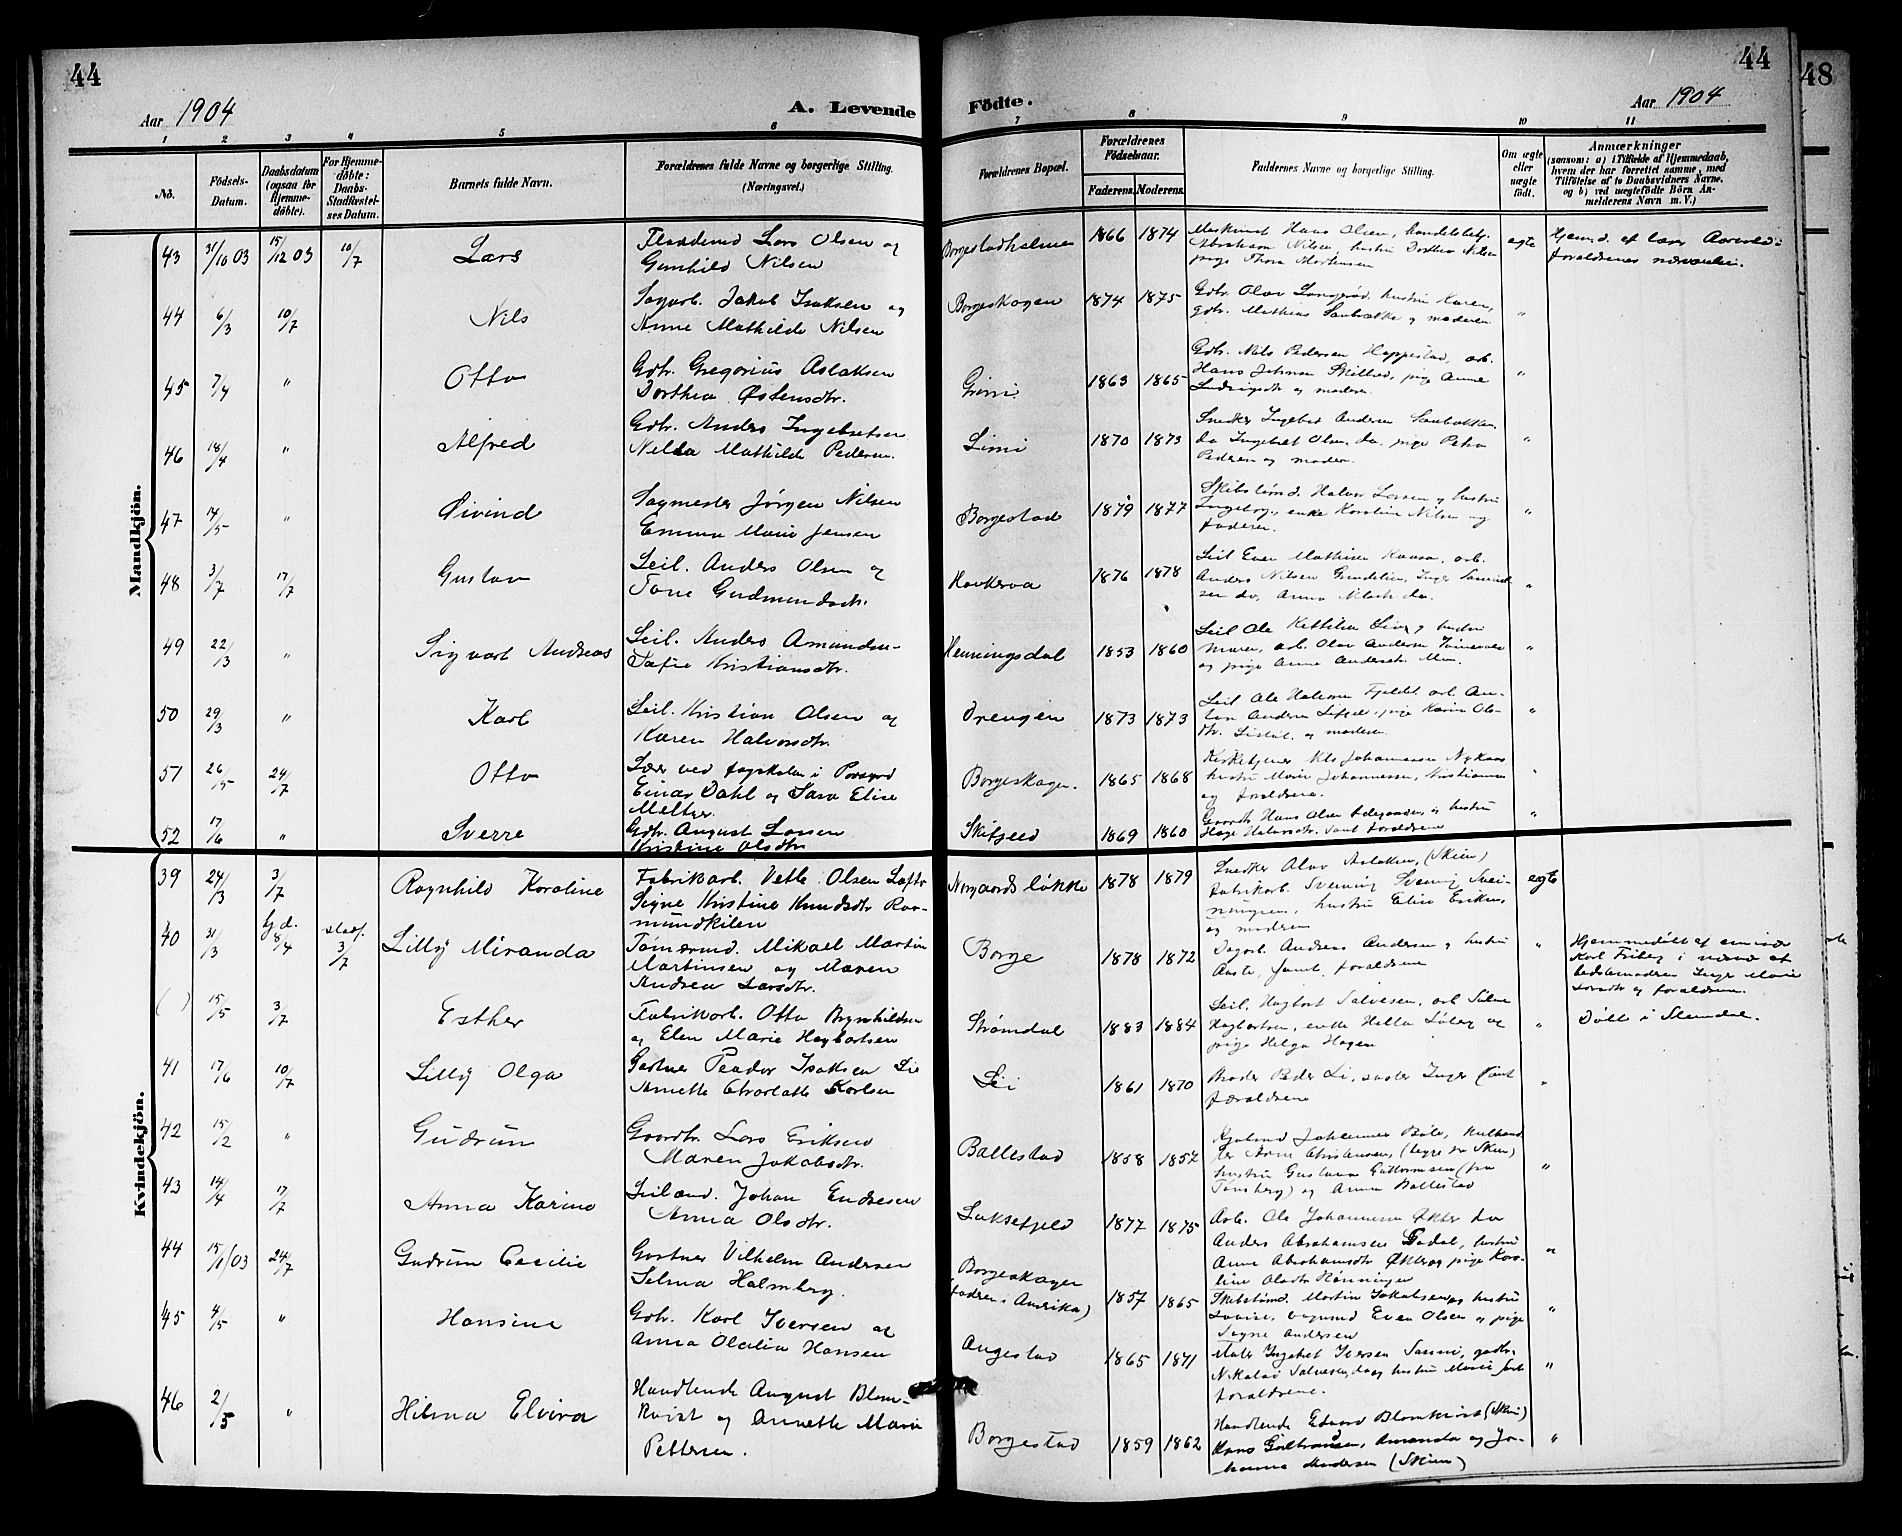 44
44
48
Aar 1904
A. Levende
Födte.
Aar 1904
1 2 3 4 5 6 7 8 9 10 11
No.
Födsels-
Datum.
Daabsdatum
(ogsaa for
Hjemme-
döbte).
For Hjemme-
döbte:
Daabs-
Stadfæstel-
ses Datum.
Barnets fulde Navn.
Forældrenes fulde Navne og borgerlige Stilling.
(Næringsvei.)
Forældrenes Bopæl.
Forældrenes
Födselsaar.
Faderens. Moderens.
Faddernes Navne og borgerlige Stilling.
Om ægte
eller
uægte
født.
Anmærkninger
(saasom: a) i Tilfælde af Hjemmedaab,
hvem der har forrettet samme, med
Tilföielse af to Daabsvidners Navne,
og b) ved uægtefödte Börn An-
melderens Navn m. V.)
Mandkjön.
43 31/10 03 15/12 03 10/7 Lars
Lars Olsen og
Gunhild Nilsen
Borgestadholmen 1866 1874
Maskinist Hans Olsen,
Abraham Nilsen, hustru Dorthea Nilsen
pige Thora Mortensen
egte
forældrenes
44 6/3 10/7 Nils
Sagarb. Jakob Isaksen og
Anne Mathilde Nilsen
Borgeskogen 1874 1875
Gdbr. Olav hustru Karen,
gdbr. Mathias og moderen
"
45 7/4 " Otto
Gdbr. Gregorius Aslaksen
Dorthea Østensdtr.
Grini 1863 1865
Gdbr. Nils Pedersen Heppestad, arb.
Hans Johnsen pige Anne
Ludvigsdtr og moderen
"
46 18/4 " Alfred
Gdbr. Anders Ingebretsen
Nilda Mathilde Pedersen.
Limi 1870 1873
Snedker Andersen
do Ingebret Olsen, do. pige Petra
Pedersen og moderen.
"
47 14/5 " Øivind
Sagmester Jørgen Nilsen
Emma Marie Jensen
Borgestad 1879 1877
Skibstømd. Halvor Larsen og hustru
Ingeborg, enke Karoline Nilsen og
faderen.
"
48 3/7 17/7 Gustav
Seil. Anders Olsen og
Tone Gudmundsdtr.
Haukerva 1876 1878
Seil Even Mathisen arb.
Anders Nilsen Inger
sen do, Anna Nilsdtr do.
"
49 22/3 " Sigvart Andreas
Seil. Anders Amundsen
Sofie Kristiansdtr.
Henningsdal 1853 1860
Seil Ole Kittilsen og hustru
Maren, arb. Olav Andersen
og pige Anne Andersdtr.
"
50 29/3 " Karl
Seil. Kristian Olsen og
Karen Halvorsdtr.
Drengen 1873 1873
Seil Ole Halvorsen Fjeldet, arb. An-
ton Andersen pige Karin Ols-
dtr. og moderen
"
51 26/5 24/7 Otto
Lærer ved fagskolen i Porsgrd
Einar Dahl og Sara Elise
Meltzer.
Borgeskogen. 1865 1868
Kirketjener Nils Johannessen
hustru Marie Johannessen, Kristiania
og forældrene.
"
52 17/6 " Sverre
Gdbr. August Larsen
Kristine Olsdtr
Skifjeld 1869 1860
Gaardbr. Hans Olsen og hustru
Hage Halvorsdtr. samt forældrene
"
Kvindekjön.
39 24/3 3/7 Ragnhild Karoline
Fabrikarb. Vetle Olsen
Signe Kristine Knudsdtr Rau-
mundkilen
Norgaardsløkke 1878 1879
Snedker Olav Aslaksen, (Skien)
Fabrikarb. Svennung
hustru Elise Eriksen,
og moderen
egte
40 31/3 hj.d. 8/4 stadf. 3/7 Lilly Miranda
Tømmermd. Mikael Martin
Martinsen og Maren
Andrea Larsdtr.
Borge 1878 1872
Dagarb. Andreas Andersen og hustru
Aaste, samt forældrene
"
Hjemmedøbt af emissær
Karl Friberg i nærv. af
bedstemoderen Inger Marie
Larsdtr og forældrene.
( ) 15/5 3/7 Esther
Fabrikarb. Otto Brynhildsen
og Elen Marie Hagbartsen
Strømdal 1883 1884
Seil. Hagbart Salvesen, arb
Hagbartsen, enke Helle og
pige Helga Hagen
"
Døbt i Slemdal.
41 17/6 10/7 Lilly Olga
Gartner Peder Isaksen Lie
Annette Charlotte Karlsen
Lei 1861 1870
Broder Peder Li, søster Inger samt
forældrene
"
42 15/2 " Gudrun
Gaardbr. Lars Eriksen
Maren Jakobsdtr.
Ballestad 1858 1857
Johannes
Arne Christensen (begge fra Skien)
hustru Gustava Guttormsen (fra
Tønsberg) og Anna Ballestad
"
43 14/4 17/7 Anna Karine
Seilmd. Johan Endresen
Anna Olsdtr.
Luksefjeld 1877 1875
Arb. Ole Johannessen Økter do
Anders Abrahamsen hustru
Anne Abrahamsdtr Økter og pige Karo-
line Olsdtr Rønningen
"
44 15/ /03 24/7 Gudrun Cecilie
Gartner Vilhelm Andersen
Selma Holmberg.
Borgeskogen
(fadren i Amerika)
1857 1865
Skibstømd. Martin Jakobsen og hustru
Lovise, Even Olsen og pige
Signe Andersen
"
45 4/5 " Hansine
Gdbr. Karl Iversen og
Anna Olalia Hansen
Augestad 1865 1871
Maler Ingebret Iversen gdbr.
Nikolai Salvesen, do og hustru Marie samt
forældrene.
"
46 2/5 " Hilma Elvira
Handlende August Blom-
kvist og Annette Marie
Pettersen.
Borgestad 1859 1862
Handlende Edvard Blomkvist (Skien)
Hans Amanda og Jo-
hanna Andersen (Skien)
"